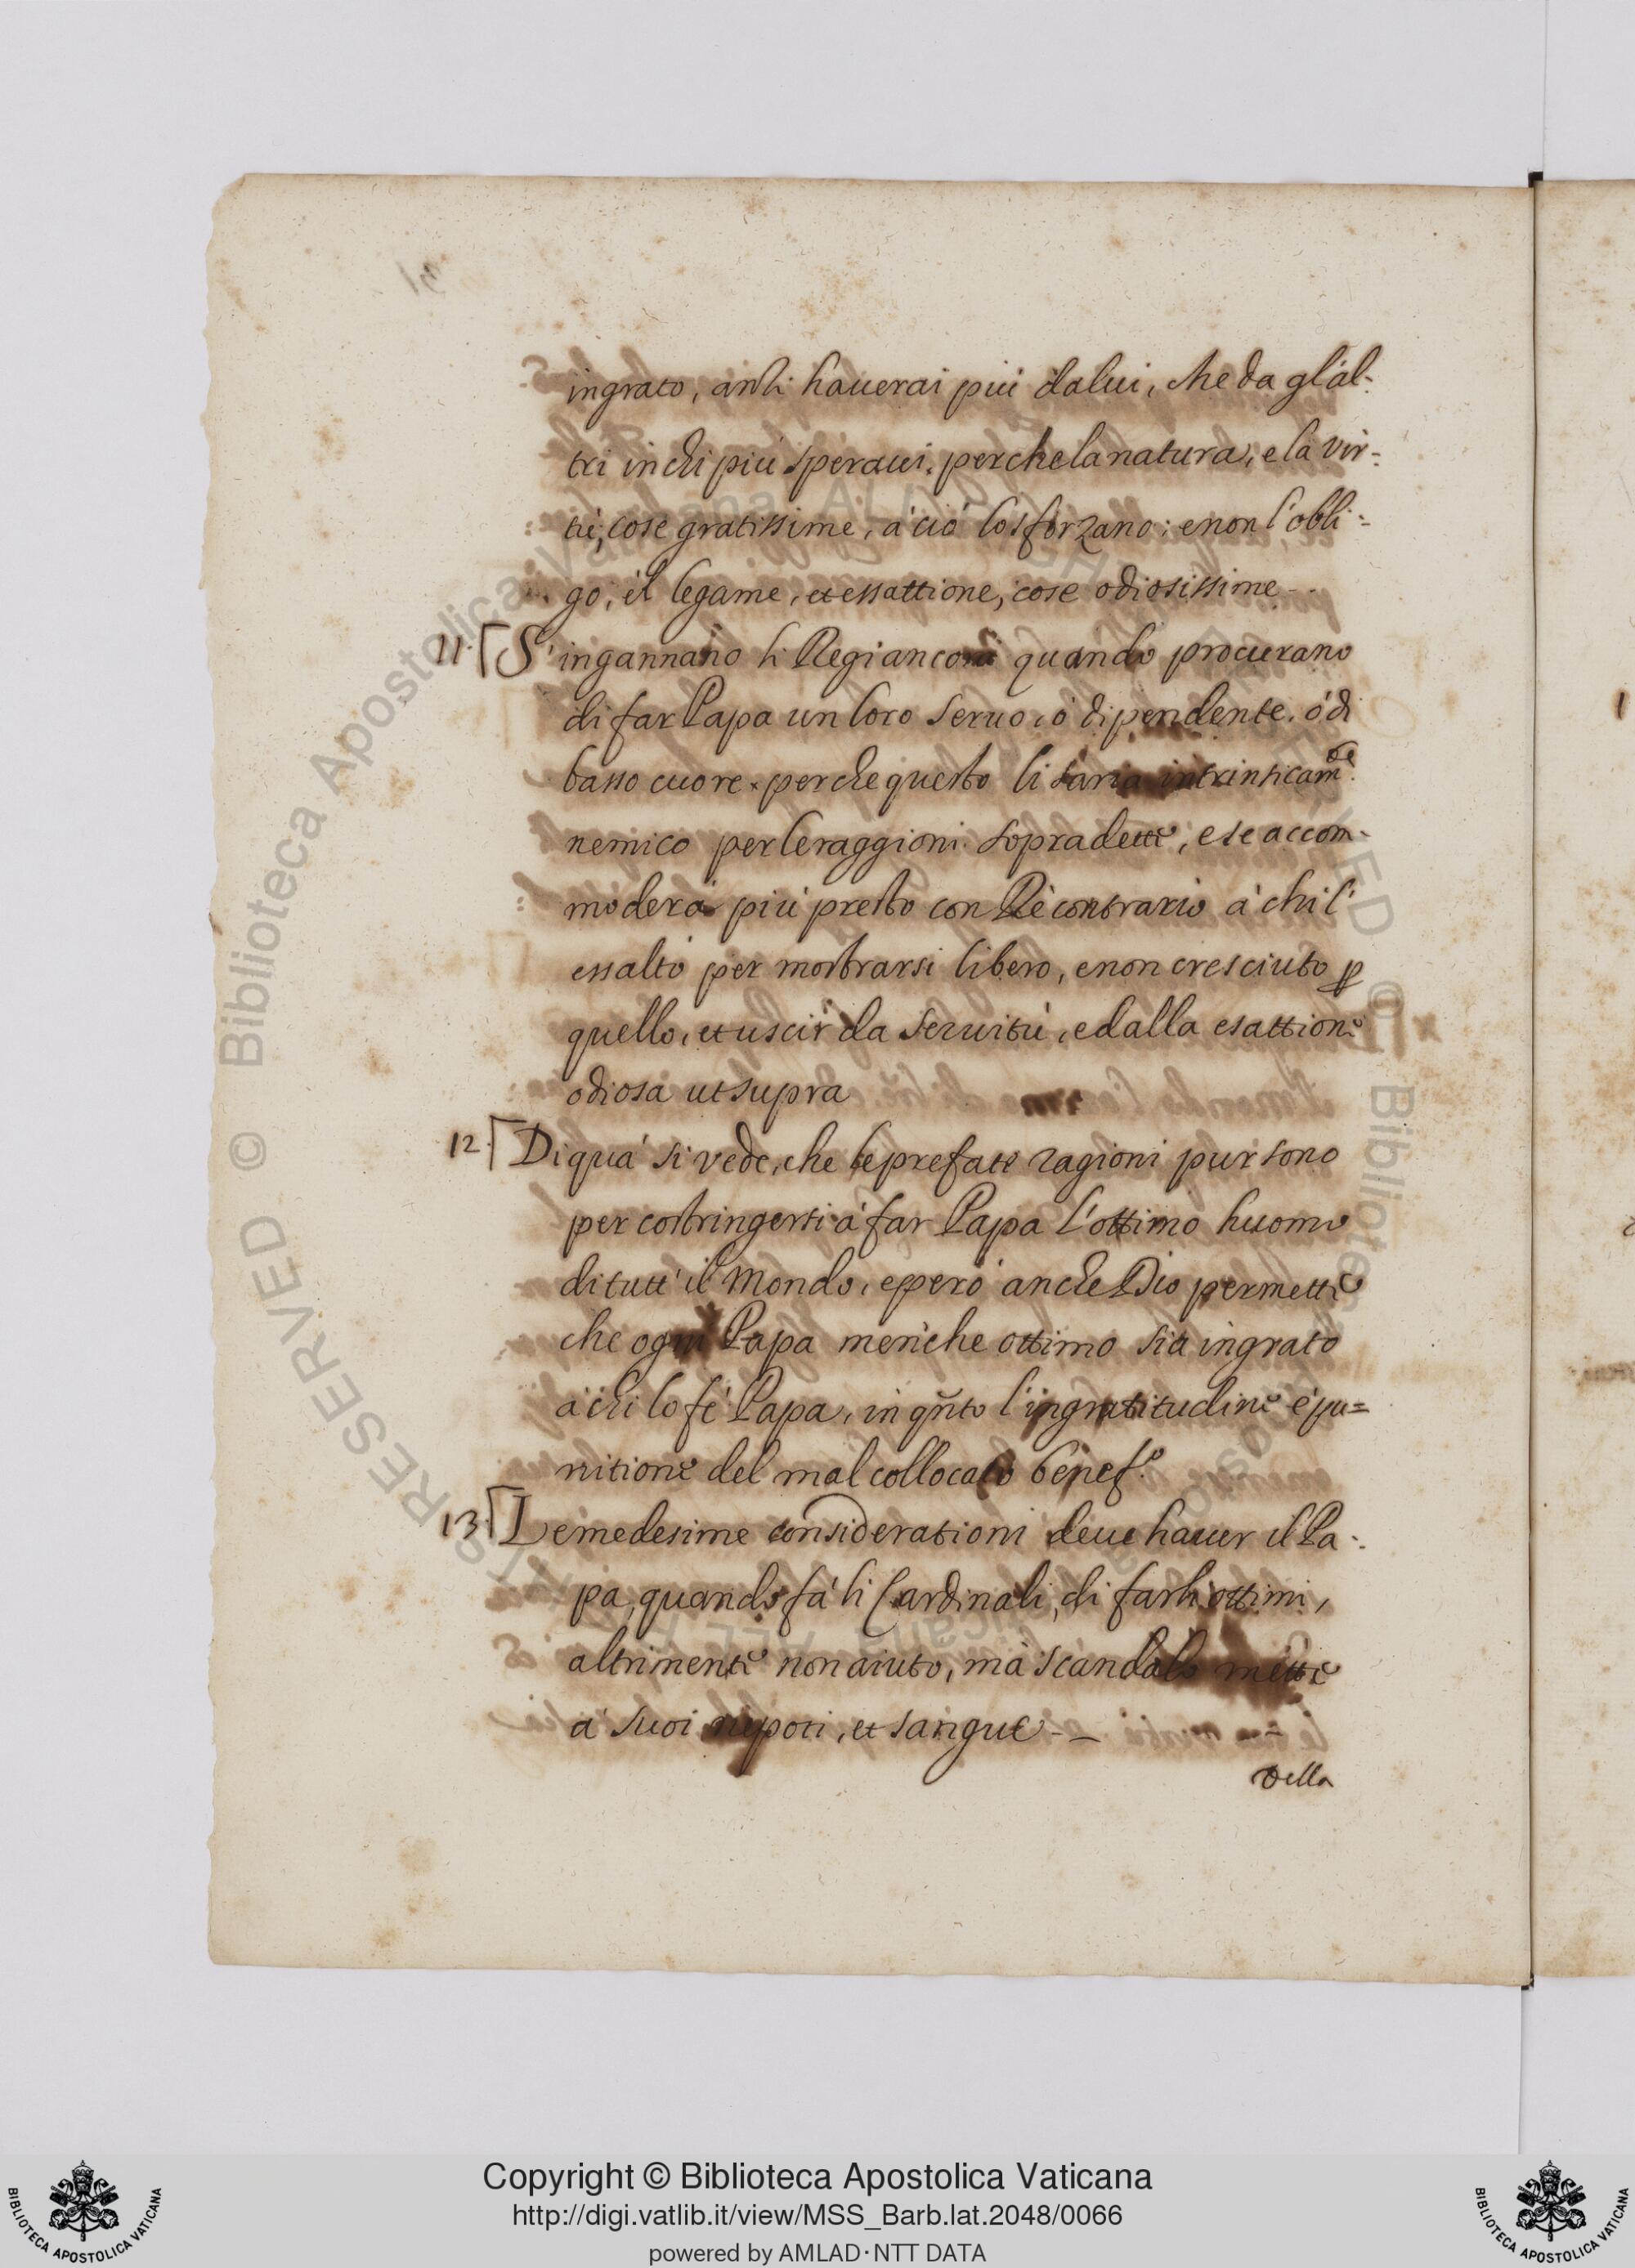 ingrato, anzi hauerai più da lui, che da gl'al-
tri in chi più speraui. perche la natura, e la vir-
tù, cose gratissime, à ciò lo sforzano: e non l'obli-
go, è'l legame, et essattione, cose odiosissime
11. S'ingannano li Regi ancora quando procurano
di far Papa un loro seruo, ò dipendente, ò di
basso cuore. perche questo li saria intrinsicam.te
nemico per le raggioni sopradette, e se accom-
moderà più presto con Rè contrario à chi l'
essaltò per mostrarsi libero, e non cresciuto p
quello, et uscir da seruitù, e dalla esattione
odiosa ut supra
12. Di quà si vede, che le prefate ragioni pur sono
per costringersi à far Papa l'ottimo huomo
di tutt'il Mondo, e però anche Dio permette
che ogni Papa men'che ottimo sia ingrato
à chi lo fè Papa, in qnto l'ingratitudine è pu=
nitione del mal collocato benef.o
13. Le medesime considerationi deue hauer il Pa-
pa, quando fà li Cardinali, di farli ottimi,
altrimente non aiuto, mà scandalo mette
à suoi nepoti, et sangue - -
Della
Copyright © Biblioteca Apostolica Vaticana
http://digi.vatlib.it/view/MSS_Barb.lat.2048/0066
powered by AMLAD·NTT DATA
BIBLIOTECA APOSTOLICA VATICANA
BIBLIOTECA APOSTOLICA VATICANA